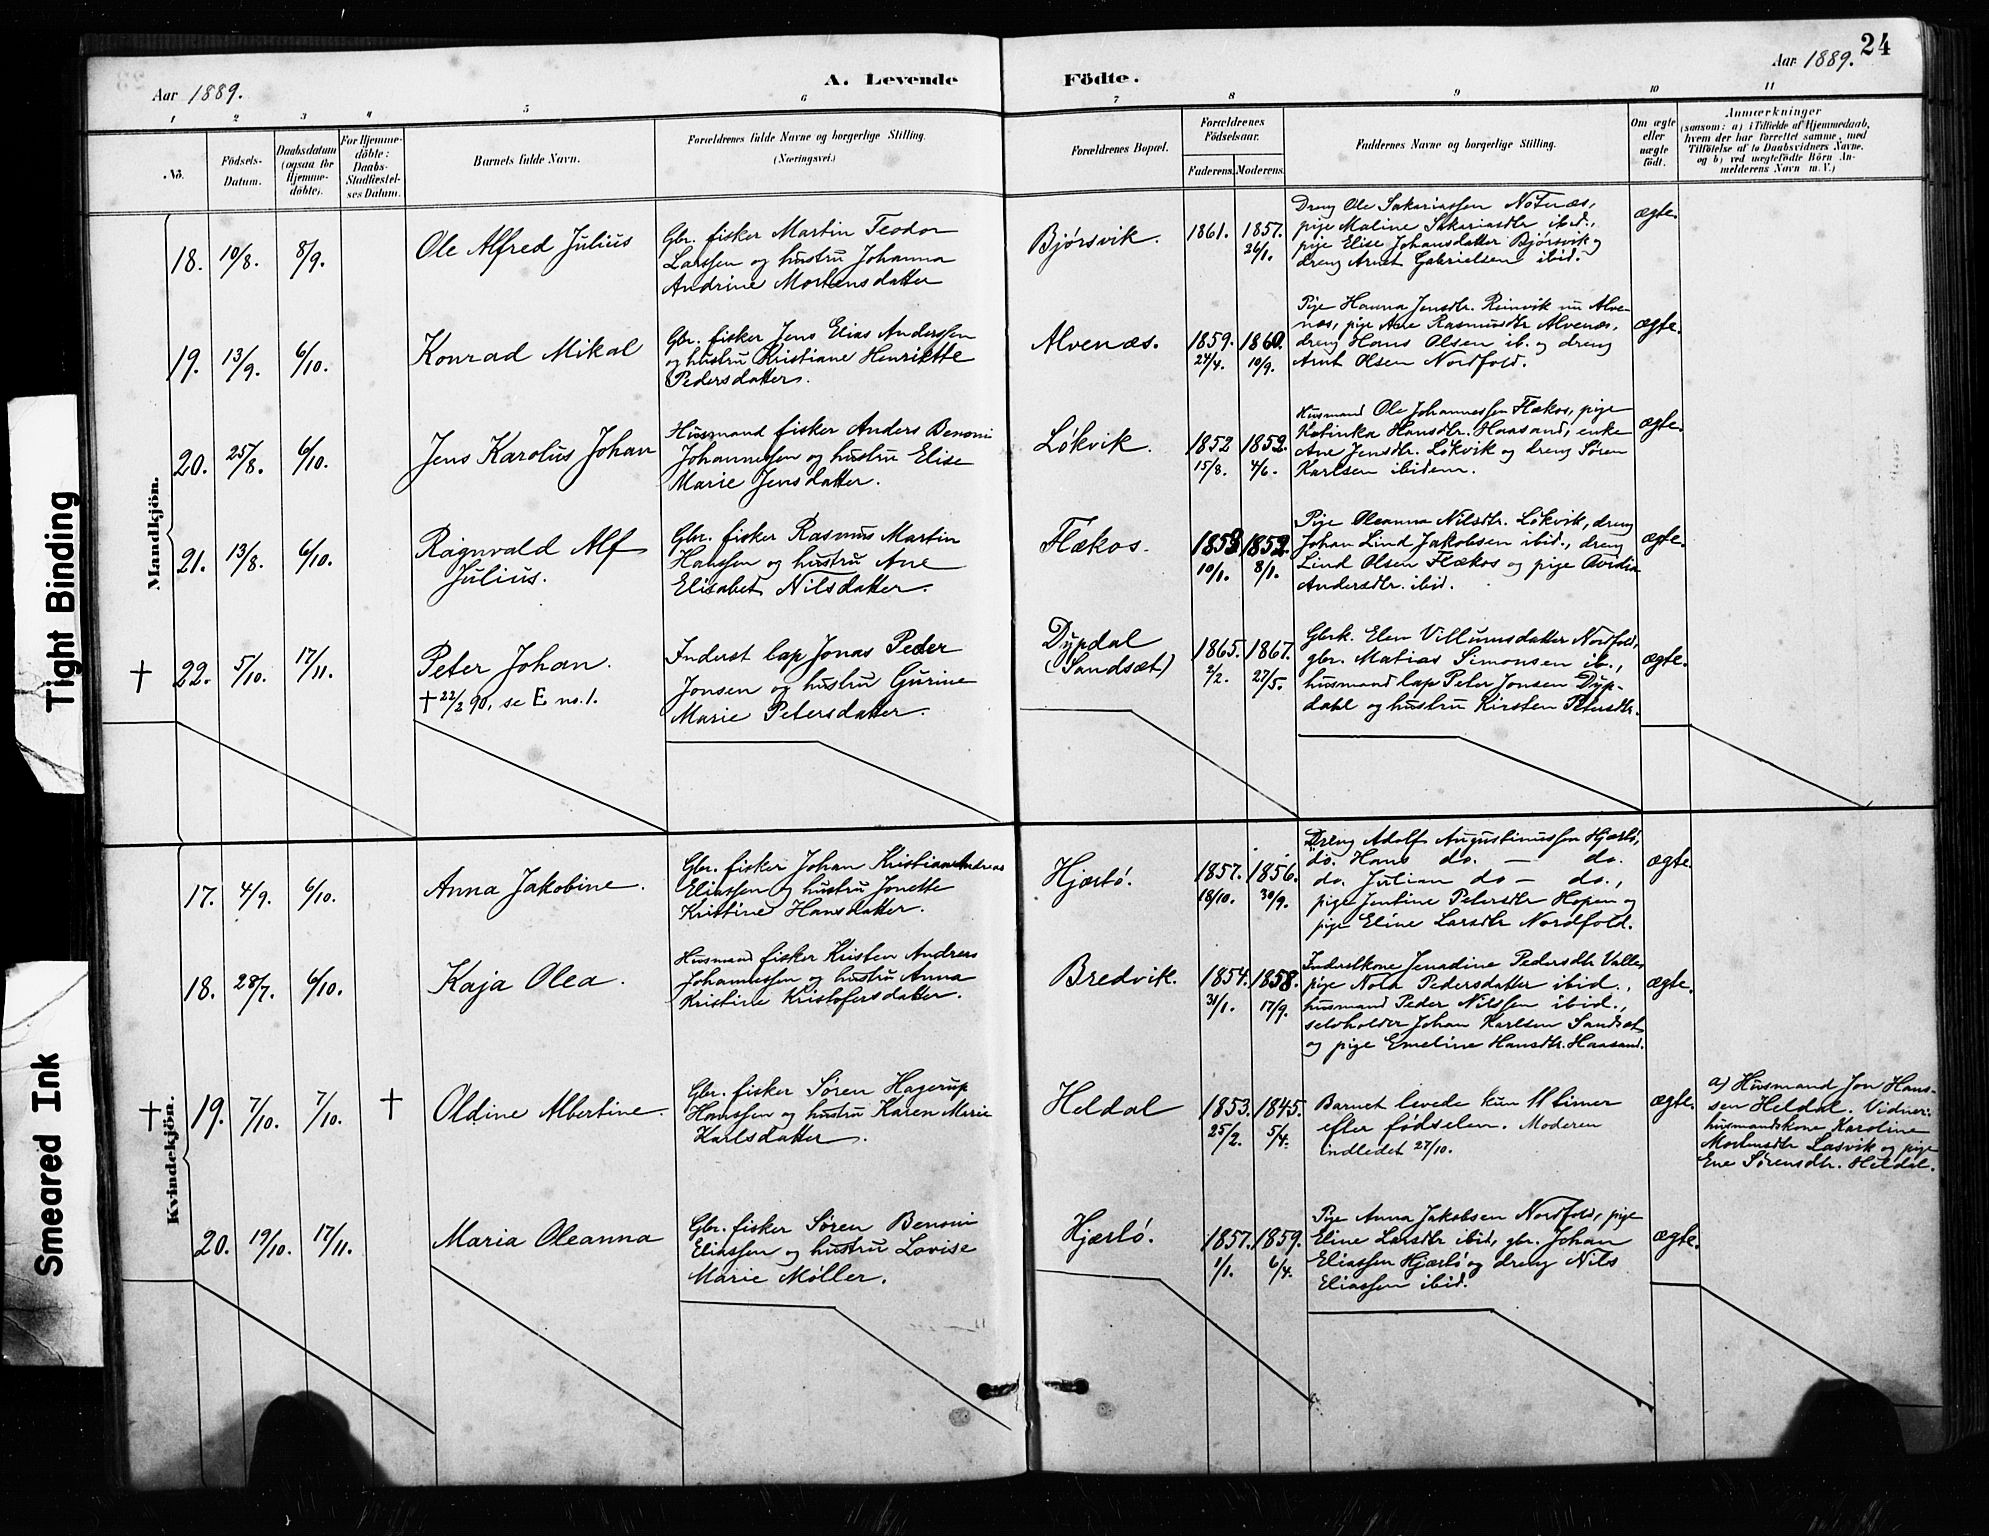 24
Aar 1889.
A. Levende
Födte.
Aar 1889.
1
2
3
4
5
6
7
8
9
10
11
No.
Födsels-
Datum.
Daabsdatum
(ogsaa for
Hjemme-
döbte).
For Hjemme-
döbte:
Daabs-
Stadfæstel-
ses Datum.
Barnets fulde Navn.
Forældrenes fulde Navne og borgerlige Stilling.
(Næringsvei.)
Forældrenes Bopæl.
Forældrenes
Födselsaar.
Faderens.
Moderens.
Faddernes Navne og borgerlige Stilling.
Om ægte
eller
uægte
födt.
Anmærkninger
(saasom: a) i Tilfælde af Hjemmedaab,
hvem der har forrettet samme, med
Tilföielse af to Daabsvidners Navne,
og b) ved uægtefödte Börn An-
melderens Navn m. V.)
Mandkjön.
18.
10/8.
8/9.
Ole Alfred Julius
Gbr. fisker Martin Teodor
Larssen og hustru Johanna
Andrine Mortensdatter
Bjørsvik.
1861.
1857.
26/1.
Dreng Ole Sakariassen Nøtnæs,
pige Maline Sakariasdtr ibid.,
pige Elise Johansdatter Bjørsvik og
dreng Arnt Gabrielsen ibid.
ægte.
19.
13/9.
6/10.
Konrad Mikal
Gbr. fisker Jens Elias Anderssen
og hustru Kristiane Henriette
Pedersdatter.
Alvenæs.
1859.
27/4.
1860.
10/9.
Pige Hanna Jensdtr. Reinvik nu Alve-
næs, pige Ane Rasmusdtr Alvenæs,
dreng Hans Olsen ib. og dreng
Arnt Olsen Nordfold.
ægte.
20.
25/8.
6/10.
Jens Karolus Johan
Husmand fisker Anders Benoni
Johannessen og hustru Elise
Marie Jensdatter.
Løkvik.
1852
15/8.
1852.
4/6.
Husmand Ole Johannessen Flækos, pige
Katinka Hansdtr. Haasand, enke
Ane Jensdtr. Løkvik og dreng Søren
Karlsen ibidem.
ægte.
21.
13/8.
6/10.
Ragnvald Alf
Julius.
Gbr. fisker Rasmus Martin
Hanssen og hustru Ane
Elisabet Nilsdatter.
Flækos.
1853
10/1.
1852.
8/1.
Pige Oleanna Nilsdtr. Løkvik, dreng
Johan Lind Jakobsen ibid., dreng
Lind Olsen Flækos og pige Ovidia
Andersdtr. ibid.
ægte.
†
22.
5/10.
17/11.
Peter Johan.
† 22/2 90, se E no. 1.
Inderst lap Jonas Peder
Jonsen og hustru Gurine
Marie Petersdatter.
Dypdal
(Sandsæt)
1865.
2/2.
1867.
27/5.
Gbrk. Elen Villumsdatter Nordfold,
gbr. Matias Simonsen ib.,
husmand lap Peter Jonsen Dyp-
dahl og hustru Kirsten Petersdtr.
ægte.
Kvindekjön.
17.
4/9.
6/10.
Anna Jakobine.
Gbr. fisker Johan Kristian Andreas
Eliassen og hustru Jonette
Kristine Hansdatter.
Hjærtø.
1857.
18/10.
1856.
30/9.
Dreng Adolf Augustinussen Hjærtø,
do. Hans do. — do.
do. Julian do — do.,
pige Jentine Petersdtr Hopen og
pige Eline Larsdtr Nordfold.
ægte
18.
28/7.
6/10.
Kaja Olea.
Husmand fisker Kristen Andreas
Johannessen og hustru Anna
Kristine Kristofersdatter.
Bredvik.
1854.
31/1.
1858.
17/9.
Inderstkone Jenadine Pedersdtr Valle,
pige Nola Pedersdatter ibid.,
husmand Peder Nilssen ibid.,
selvholder Johan Karlsen Sandsæt
og pige Emeline Hansdtr. Haasand.
ægte.
†
19.
7/10.
7/10.
†
Oldine Albertine.
Gbr. fisker Søren Hagerup
Hanssen og hustru Karen Marie
Karlsdatter.
Heldal
1853.
25/2.
1845.
5/4.
Barnet levede kun 11 timer
efter fødselen. Moderen
indledet 27/10.
ægte.
a) Husmand Jon Hans-
sen Heldal. Vidner:
husmandskone Karoline
Mortensdtr Lasvik og pige
Ene Sørensdtr. Heldal.
20.
19/10.
17/11.
Maria Oleanna
Gbr. fisker Søren Benoni
Eliassen og hustru Lovise
Marie Møller.
Hjærtø.
1857.
1/1.
1859.
6/4.
Pige Anna Jakobsen Nordfold, pige
Eline Larsdtr ibid, gbr. Johan
Eliassen Hjærtø og dreng Nils
Eliassen ibid.
ægte.
Tight Binding
Smeared Ink